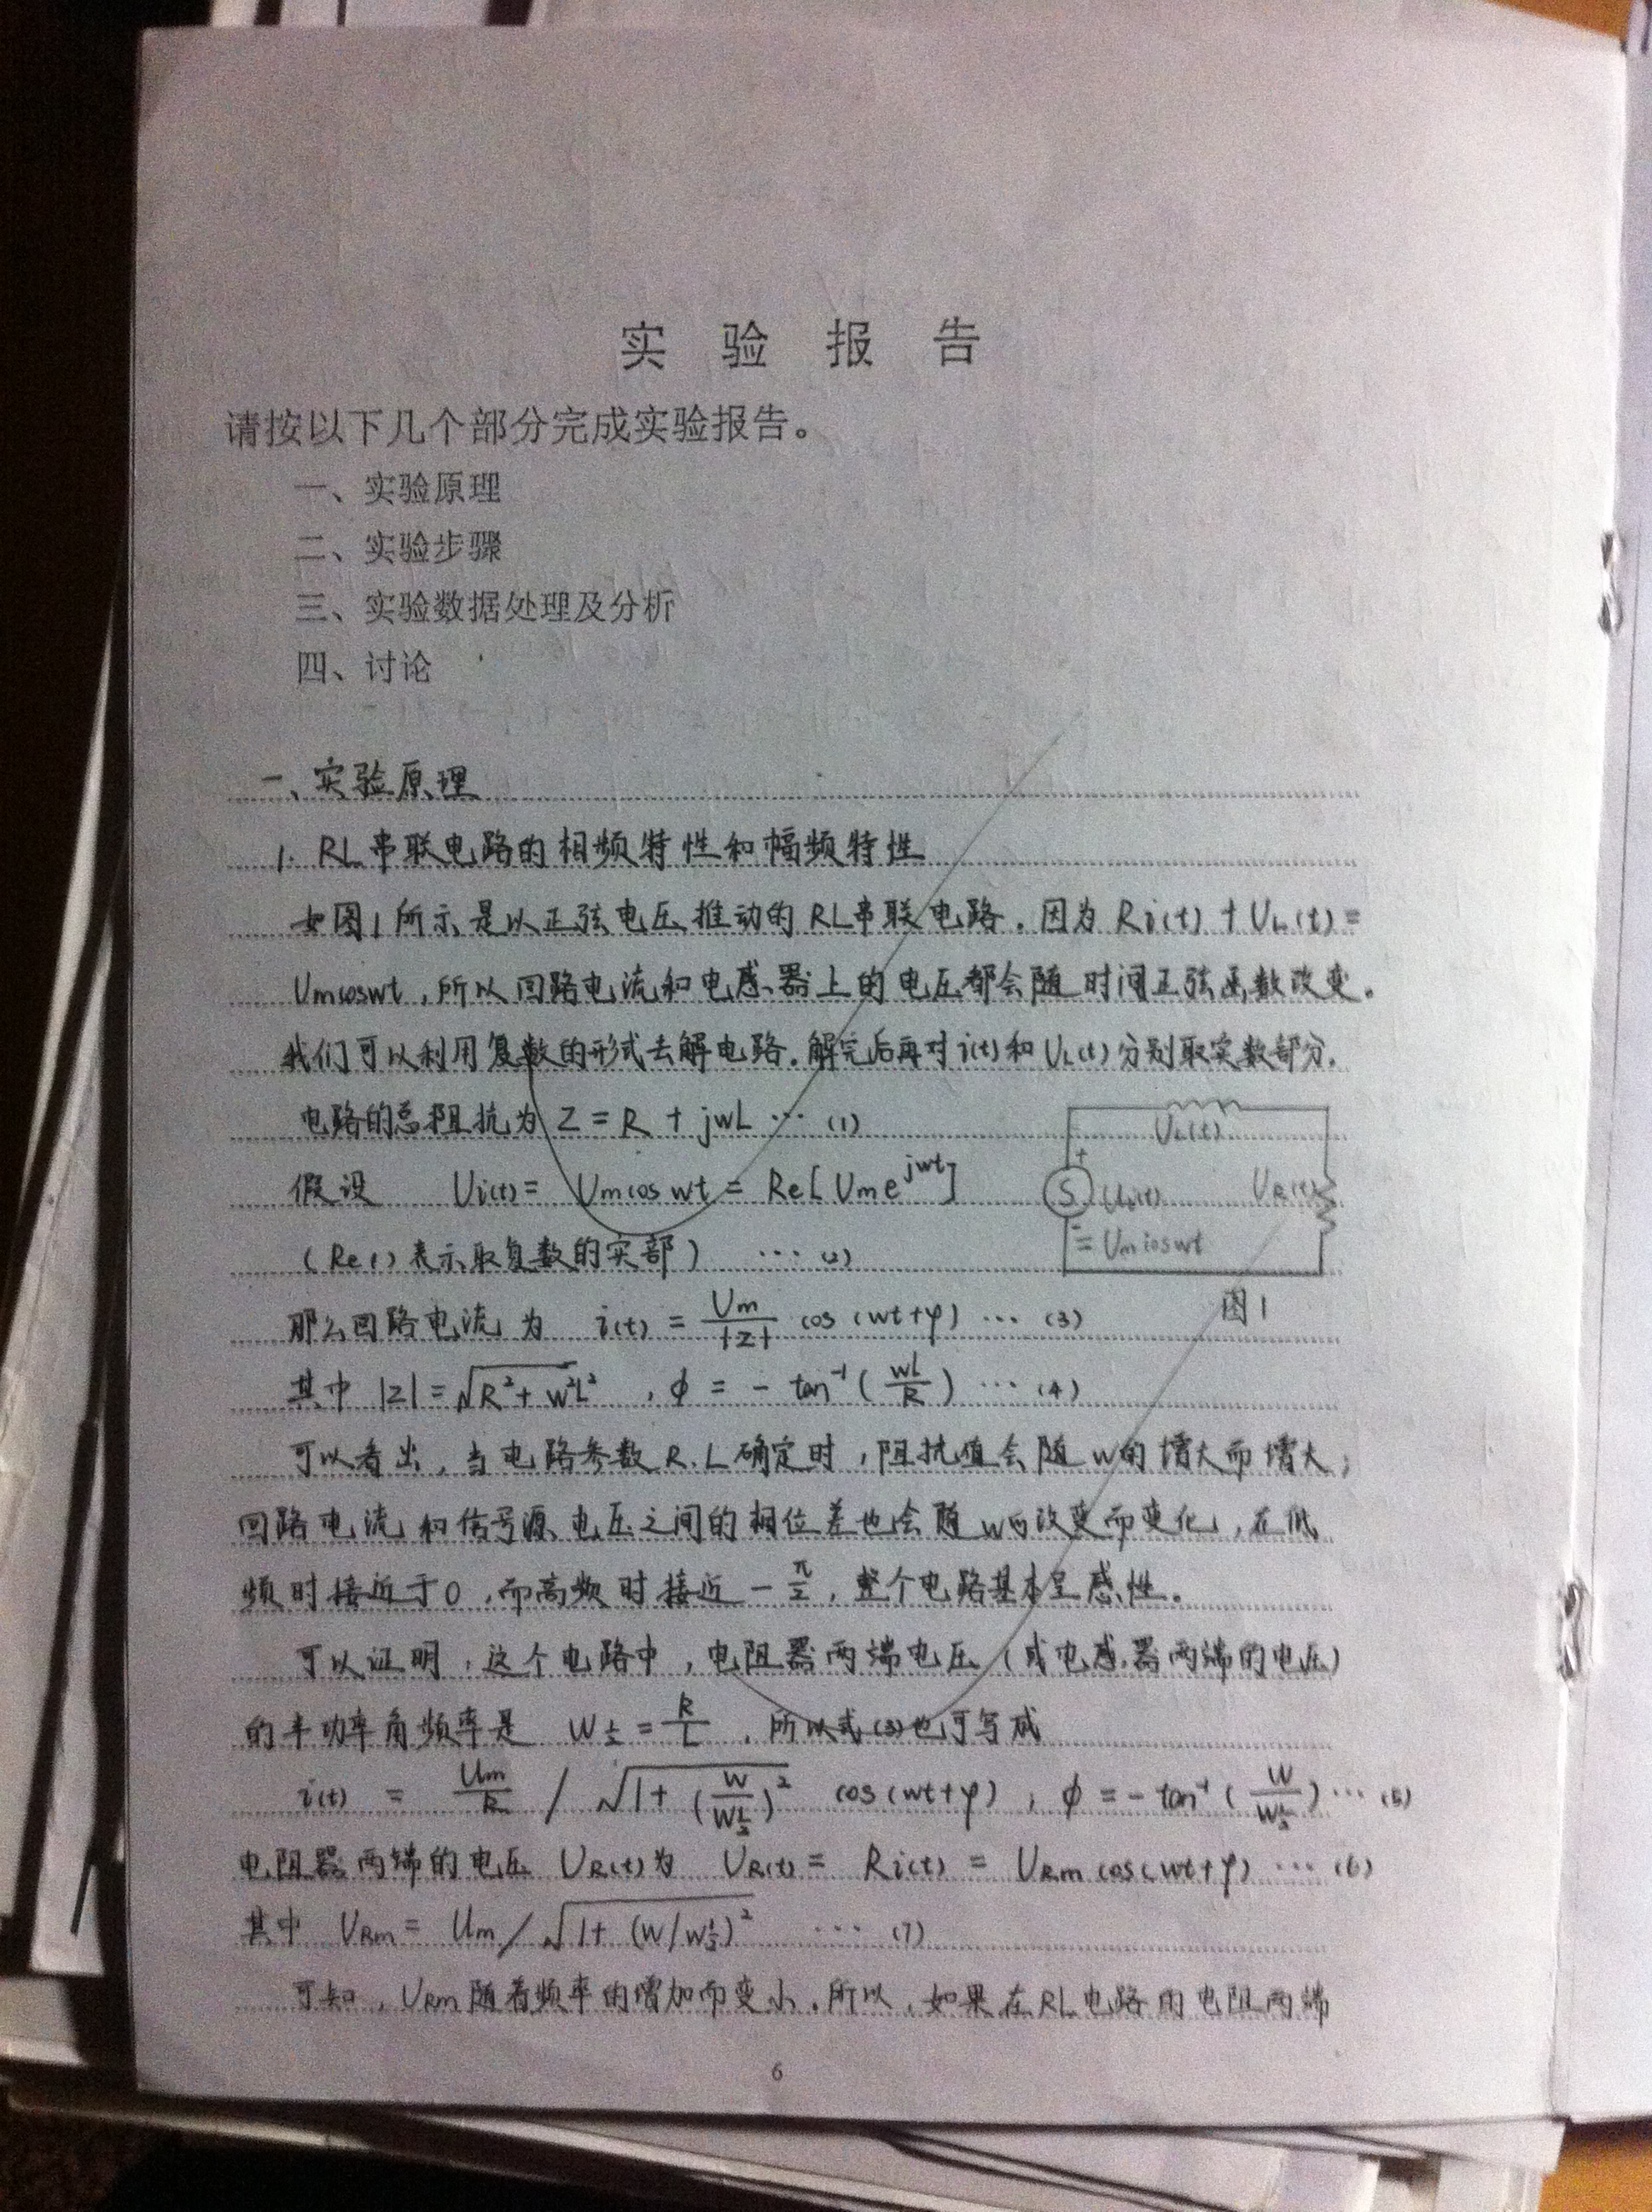 实 验 报 告
请按以下几个部分完成实验报告。
一、实验原理
二、实验步骤
三、实验数据处理及分析
四、讨论
一、实验原理
1. RL串联电路的相频特性和幅频特性
如图1所示是以正弦电压推动的RL串联电路. 因为 Ri(t) + UL(t) =
Umcoswt, 所以回路电流和电感器上的电压都会随时间正弦函数改变.
我们可以利用复数的形式去解电路. 解完后再对i(t)和UL(t)分别取实数部分.
电路的总阻抗为 Z = R + jwL … (1)
UL(t)
假设 Ui(t) = Um cos wt = Re[Um e^{jwt}]
+ S Ui(t) UR(t)
- = Um coswt
(Re[] 表示取复数的实部) … (2)
图1
那么回路电流为 i(t) = Um/|Z| cos(wt+φ) … (3)
其中 |Z| = √(R²+w²L²) , ϕ = - tan⁻¹(wL/R) … (4)
可以看出, 当电路参数R.L确定时, 阻抗值会随w的增大而增大;
回路电流和信号源电压之间的相位差也会随w的改变而变化, 在低
频时接近于0, 而高频时接近 -π/2, 整个电路基本呈感性.
可以证明, 这个电路中, 电阻器两端电压 (或电感器两端的电压)
的半功率角频率是 w½ = R/L , 所以式(3)也可写成
i(t) = Um/R / √(1+(w/w½)²) cos(wt+φ) , ϕ = -tan⁻¹(w/w½) … (5)
电阻器两端的电压 UR(t)为 UR(t) = Ri(t) = URm cos(wt+φ) … (6)
其中 URm = Um/√(1+(w/w½)²) … (7)
可知, URm随着频率的增加而变小. 所以, 如果在RL电路的电阻两端
6